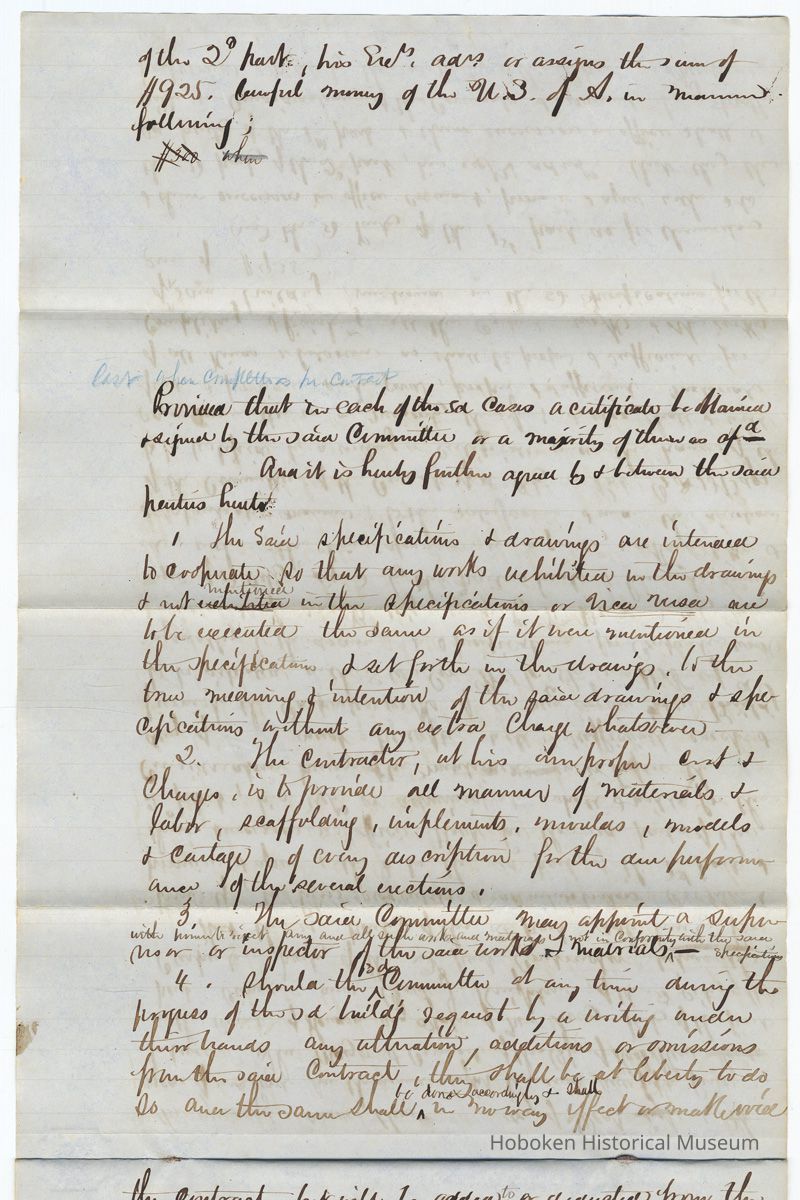 of the 2d part, his Exrs. adrs or assigns the sum of
$925. lawful money of the U.S. of A. in manner
following;
$300 when
Last when completed as per contract
Provided that in each of the sd cases a certificate be obtained
& signed by the said Committee or a majority of them as afd
And it is hereby further agreed by & between the said
parties hereto
1. The said specifications & drawings are intended
to cooperate so that any works exhibited in the drawings
mentioned
& not exhibited in the specifications or vice versa are
to be executed the same as if it were mentioned in
the specifications & set forth in the drawings, to the
true meaning & intention of the said drawings & spe-
cifications without any extra charge whatsoever
2. The contractor, at his own proper cost &
charges, is to provide all manner of materials &
labor, scaffolding, implements, moulds, models
& cartage of every description for the due perform-
ance of the several erections.
3. The said Committee may appoint a super-
with power to reject any and all such works and materials not in conformity with the said
visor or inspector of the said works & materials, specifications
4. Should the sd Committee at any time during the
progress of the sd buildg request by a writing under
their hands any alteration, additions or omissions
from the said Contract, they shall be at liberty to do
be done accordingly & shall
so and the same shall in no way effect or make void
the contract but will be added to or deducted from the
Hoboken Historical Museum